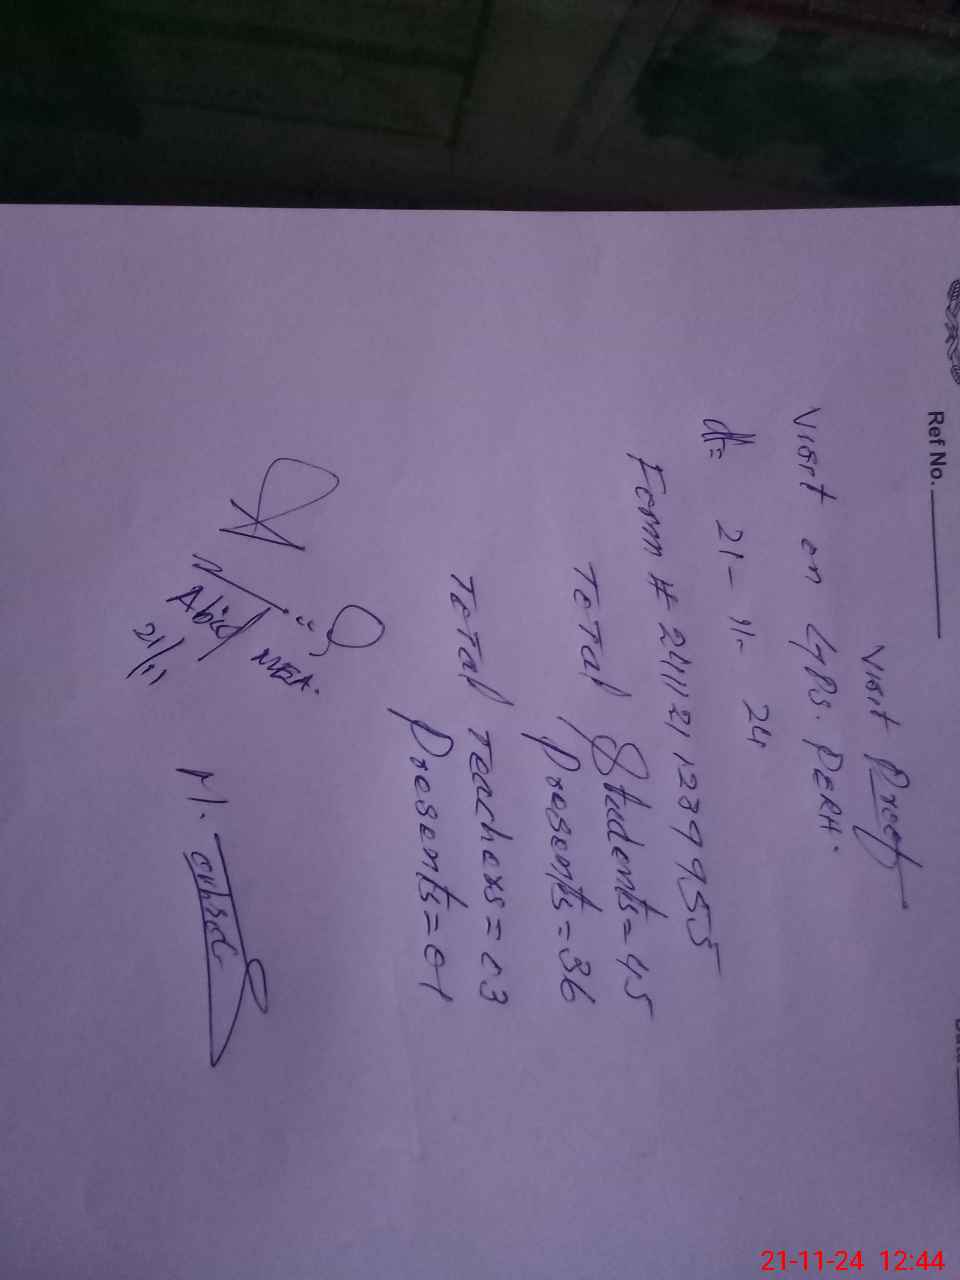 Ref No.
Visit Proof
Visit on GPS. PERH.
dt= 21-11-24
Form # 241121 1239955
Total Students=45
Presents=36
Total Teachers=03
Presents=01
Abid
MEA.
21/11
M.
21-11-24 12:44